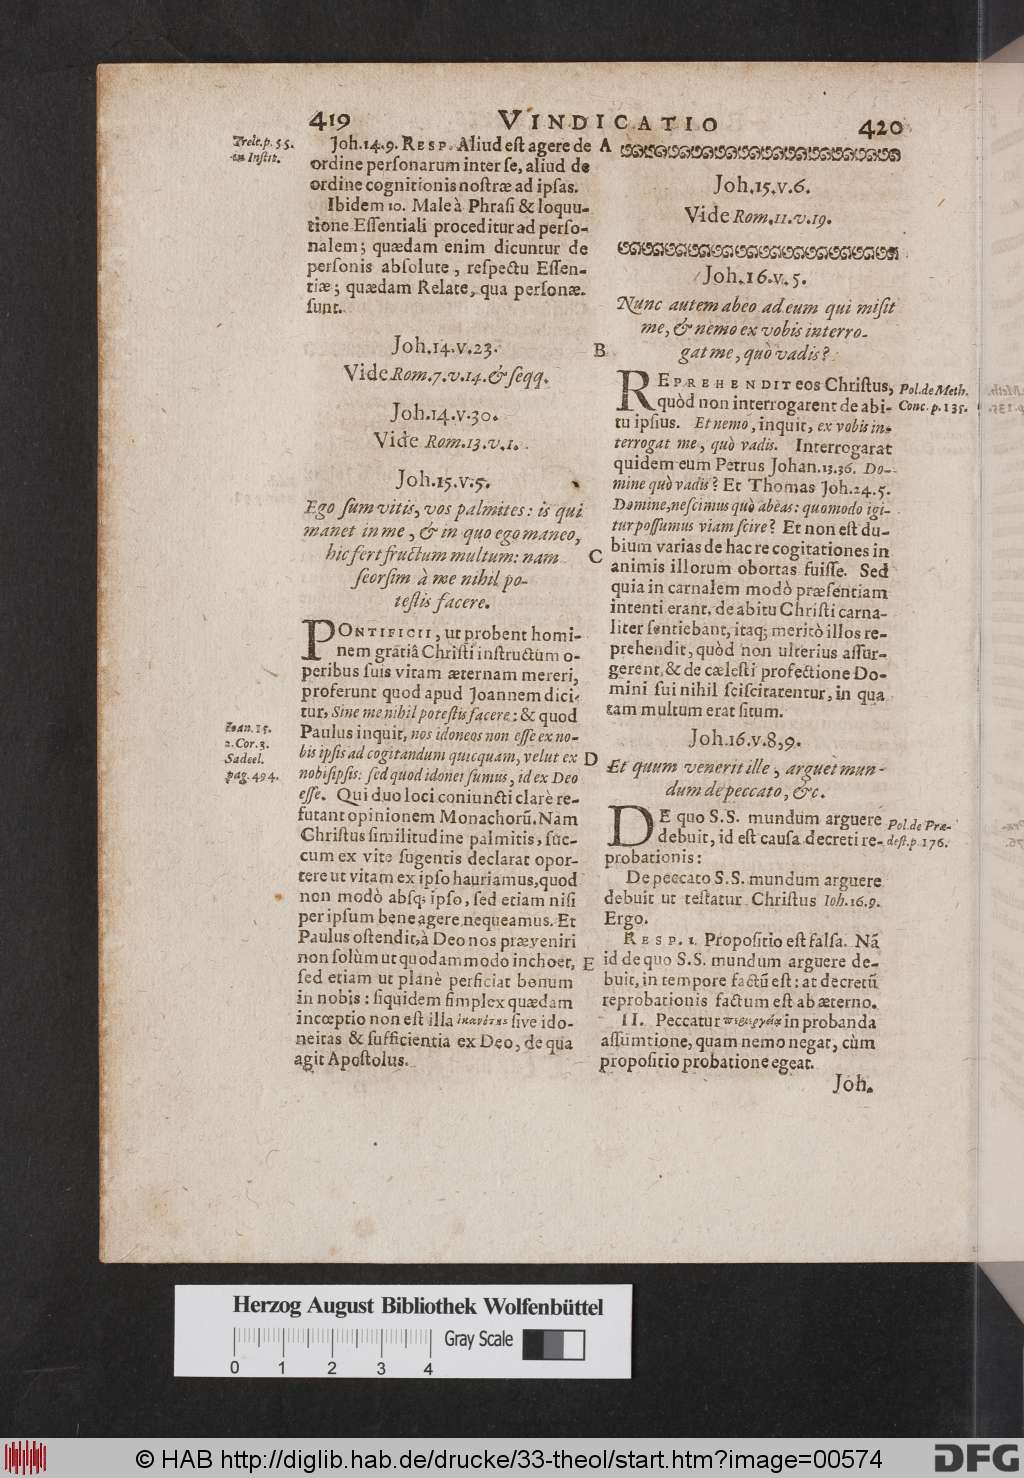 419
VINDICATIO
420
Trelc. p. 55.
in Instit.
Joh. 14. 9. RESP. Aliud est agere de
ordine personarum inter se, aliud de
ordine cognitionis nostræ ad ipsas.
Ibidem 10. Male à Phrasi & loquu-
tione Essentiali proceditur ad perso-
nalem; quædam enim dicuntur de
personis absolute, respectu Essen-
tiæ; quædam Relate, qua personæ
sunt.
Joh. 14. v. 23.
Vide Rom. 7. v. 14. & seqq.
Joh. 14. v. 30.
Vide Rom. 13. v. 1.
Joh. 15. v. 5.
Ego sum vitis, vos palmites: is qui
manet in me, & in quo ego maneo,
hic fert fructum multum: nam
seorsim à me nihil po-
testis facere.
PONTIFICII, ut probent homi-
nem gratiâ Christi instructum o-
peribus suis vitam æternam mereri,
proferunt quod apud Joannem dici-
tur, Sine me nihil potestis facere: & quod
Paulus inquit, nos idoneos non esse ex no-
bis ipsis ad cogitandum quicquam, velut ex
nobis ipsis: sed quod idonei sumus, id ex Deo
esse. Qui duo loci coniuncti clarè re-
futant opinionem Monachorũ. Nam
Christus similitudine palmitis, suc-
cum ex vite sugentis declarat opor-
tere ut vitam ex ipso hauriamus, quod
non modò absq; ipso, sed etiam nisi
per ipsum bene agere nequeamus. Et
Paulus ostendit, à Deo nos præveniri
non solùm ut quodammodo inchoet,
sed etiam ut planè perficiat bonum
in nobis: siquidem simplex quædam
incœptio non est illa ἱκανότης sive ido-
neitas & sufficientia ex Deo, de qua
agit Apostolus.
Ioan. 15.
2. Cor. 3.
Sadeel.
pag. 494.
A
B
C
D
E
Joh. 15. v. 6.
Vide Rom. 11. v. 19.
Joh. 16. v. 5.
Nunc autem abeo ad eum qui misit
me, & nemo ex vobis interro-
gat me, quò vadis?
REPREHENDIT eos Christus,
quòd non interrogarent de abi-
tu ipsius. Et nemo, inquit, ex vobis in-
terrogat me, quò vadis. Interrogarat
quidem eum Petrus Johan. 13. 36. Do-
mine quò vadis? Et Thomas Joh. 24. 5.
Domine, nescimus quò abeas: quomodo igi-
tur possumus viam scire? Et non est du-
bium varias de hac re cogitationes in
animis illorum obortas fuisse. Sed
quia in carnalem modò præsentiam
intenti erant, de abitu Christi carna-
liter sentiebant, itaq; meritò illos re-
prehendit, quòd non ulterius assur-
gerent, & de cælesti profectione Do-
mini sui nihil sciscitatentur, in qua
tam multum erat situm.
Pol. de Meth.
Conc. p. 135.
Joh. 16. v. 8, 9.
Et quum venerit ille, arguet mun-
dum de peccato, &c.
DE quo S.S. mundum arguere
debuit, id est causa decreti re-
probationis:
De peccato S.S. mundum arguere
debuit ut testatur Christus Ioh. 16. 9.
Ergo.
RESP. 1. Propositio est falsa. Nã
id de quo S.S. mundum arguere de-
buit, in tempore factũ est: at decretũ
reprobationis factum est ab æterno.
II. Peccatur in probanda
assumtione, quam nemo negat, cùm
propositio probatione egeat.
Pol. de Præ-
dest. p. 176.
Joh.
Herzog August Bibliothek Wolfenbüttel
Gray Scale
0 1 2 3 4
© HAB http://diglib.hab.de/drucke/33-theol/start.htm?image=00574
DFG